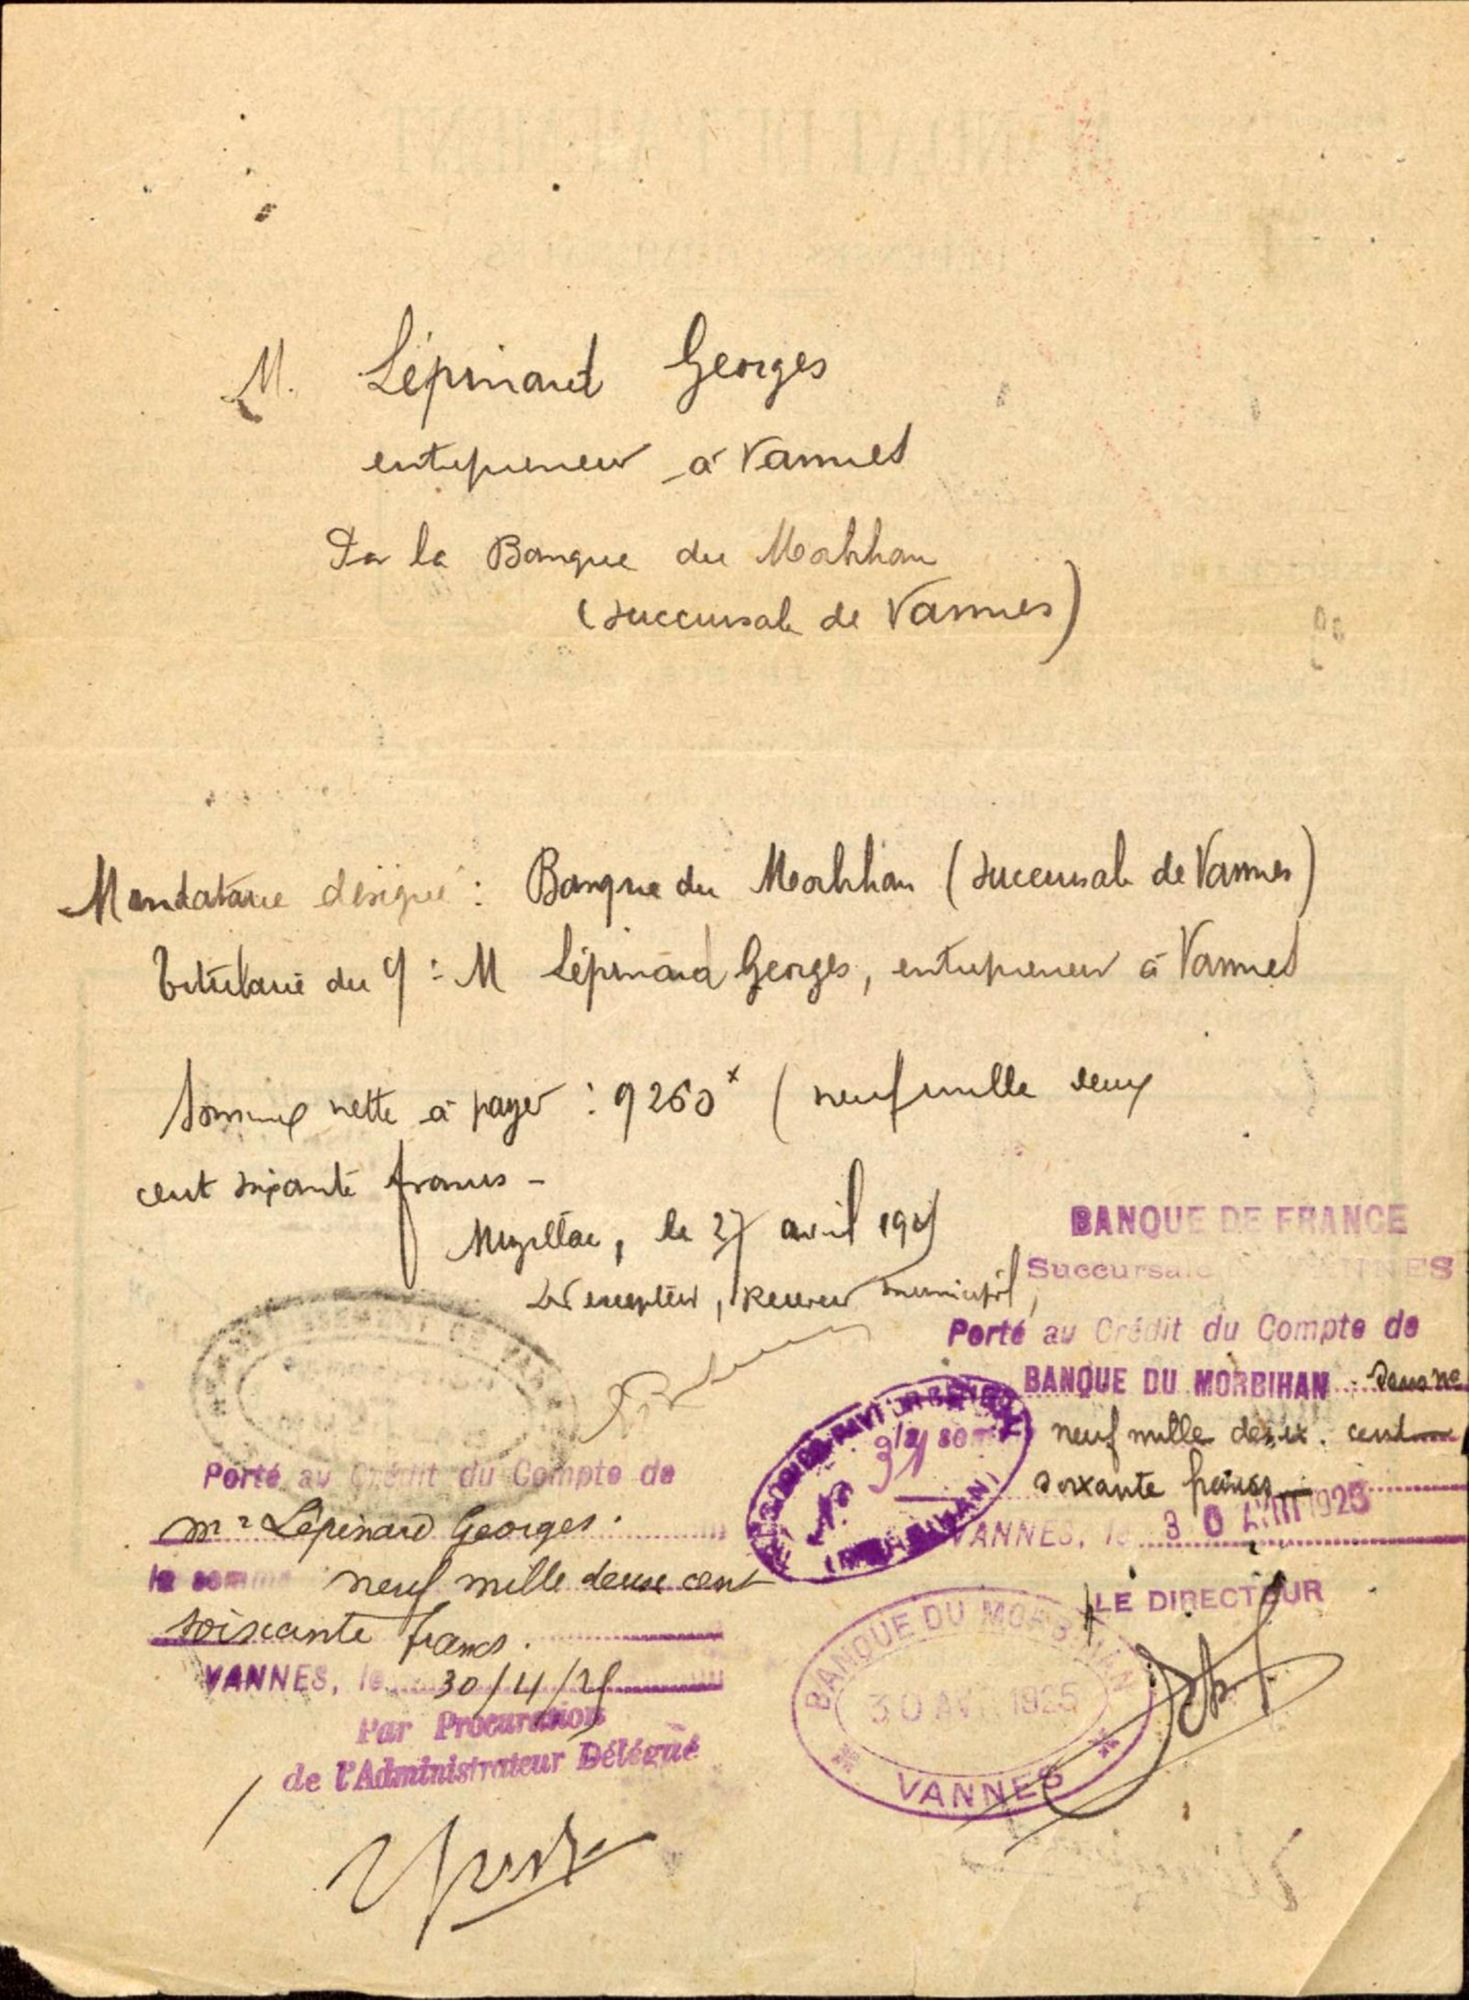 M. Lépinard Georges
entrepreneur à Vannes
Par la Banque du Morbihan
(succursale de Vannes)
Mandataire désigné : Banque du Morbihan (succursale de Vannes)
titulaire du : M Lépinard Georges, entrepreneur à Vannes
Somme nette à payer : 9260 (neuf mille deux
cent soixante francs -
Muzillac, le 27 avril 1925
Le Percepteur, Receveur municipal,
BANQUE DE FRANCE
Succursale VANNES
Porté au Crédit du Compte de
BANQUE DU MORBIHAN
neuf mille deux cent
soixante francs
VANNES, le 30 AVRI 1925
LE DIRECTEUR
ARRONDISSEMENT DE VANNES
Porté au Crédit du Compte de
Mr Lépinard Georges.
la somme neuf mille deux cent
soixante francs.
VANNES, le 30/4/25
Par Procuration
de l'Administrateur Délégué
No 31
(MORBIHAN)
BANQUE DU MORBIHAN
30 AVR 1925
VANNES